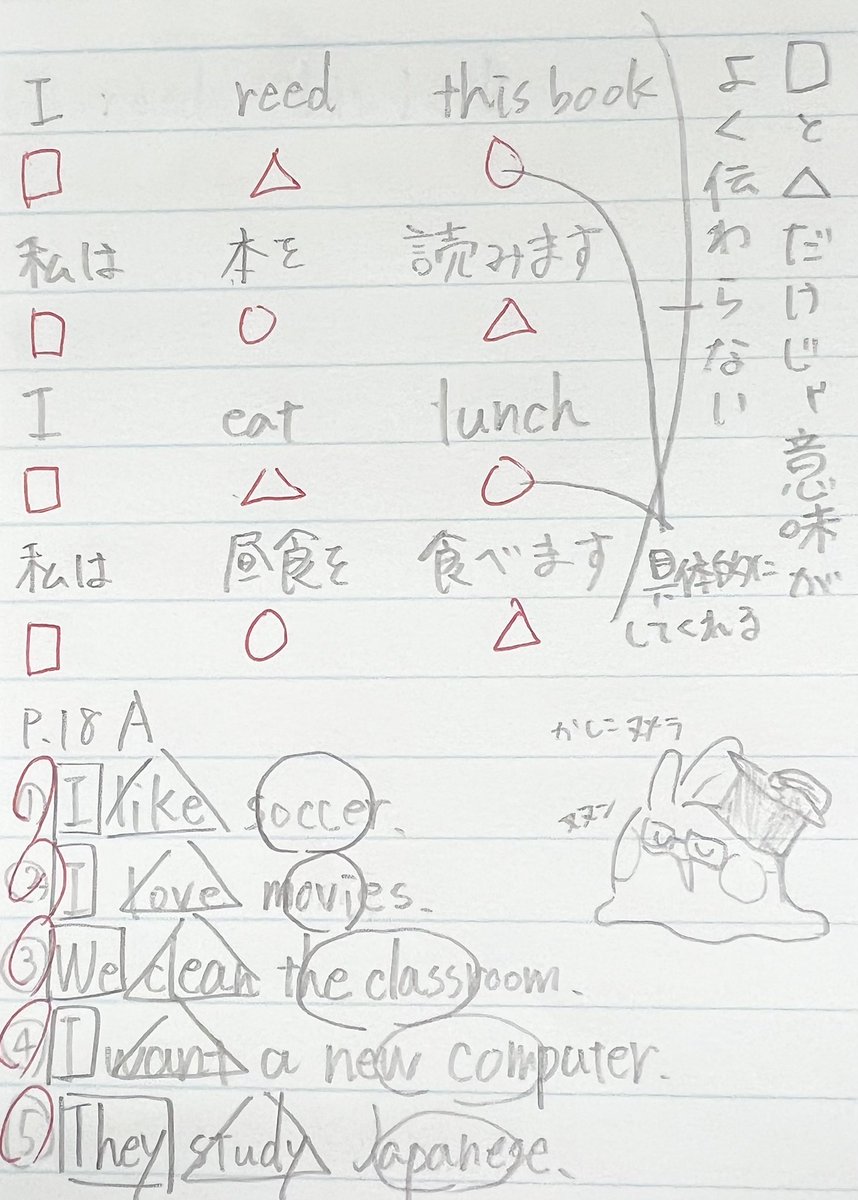 I reed this book
□ △ ○
私は 本を 読みます
□ ○ △
I eat lunch
□ △ ○
私は 昼食を 食べます
□ ○ △
□と△だけじゃ意味が
よく伝わらない
具体的に
してくれる
P.18 A
① I like soccer.
② I love movies.
③ We clean the classroom.
④ I want a new computer.
⑤ They study Japanese.
かしこヌメラ
ヌメン